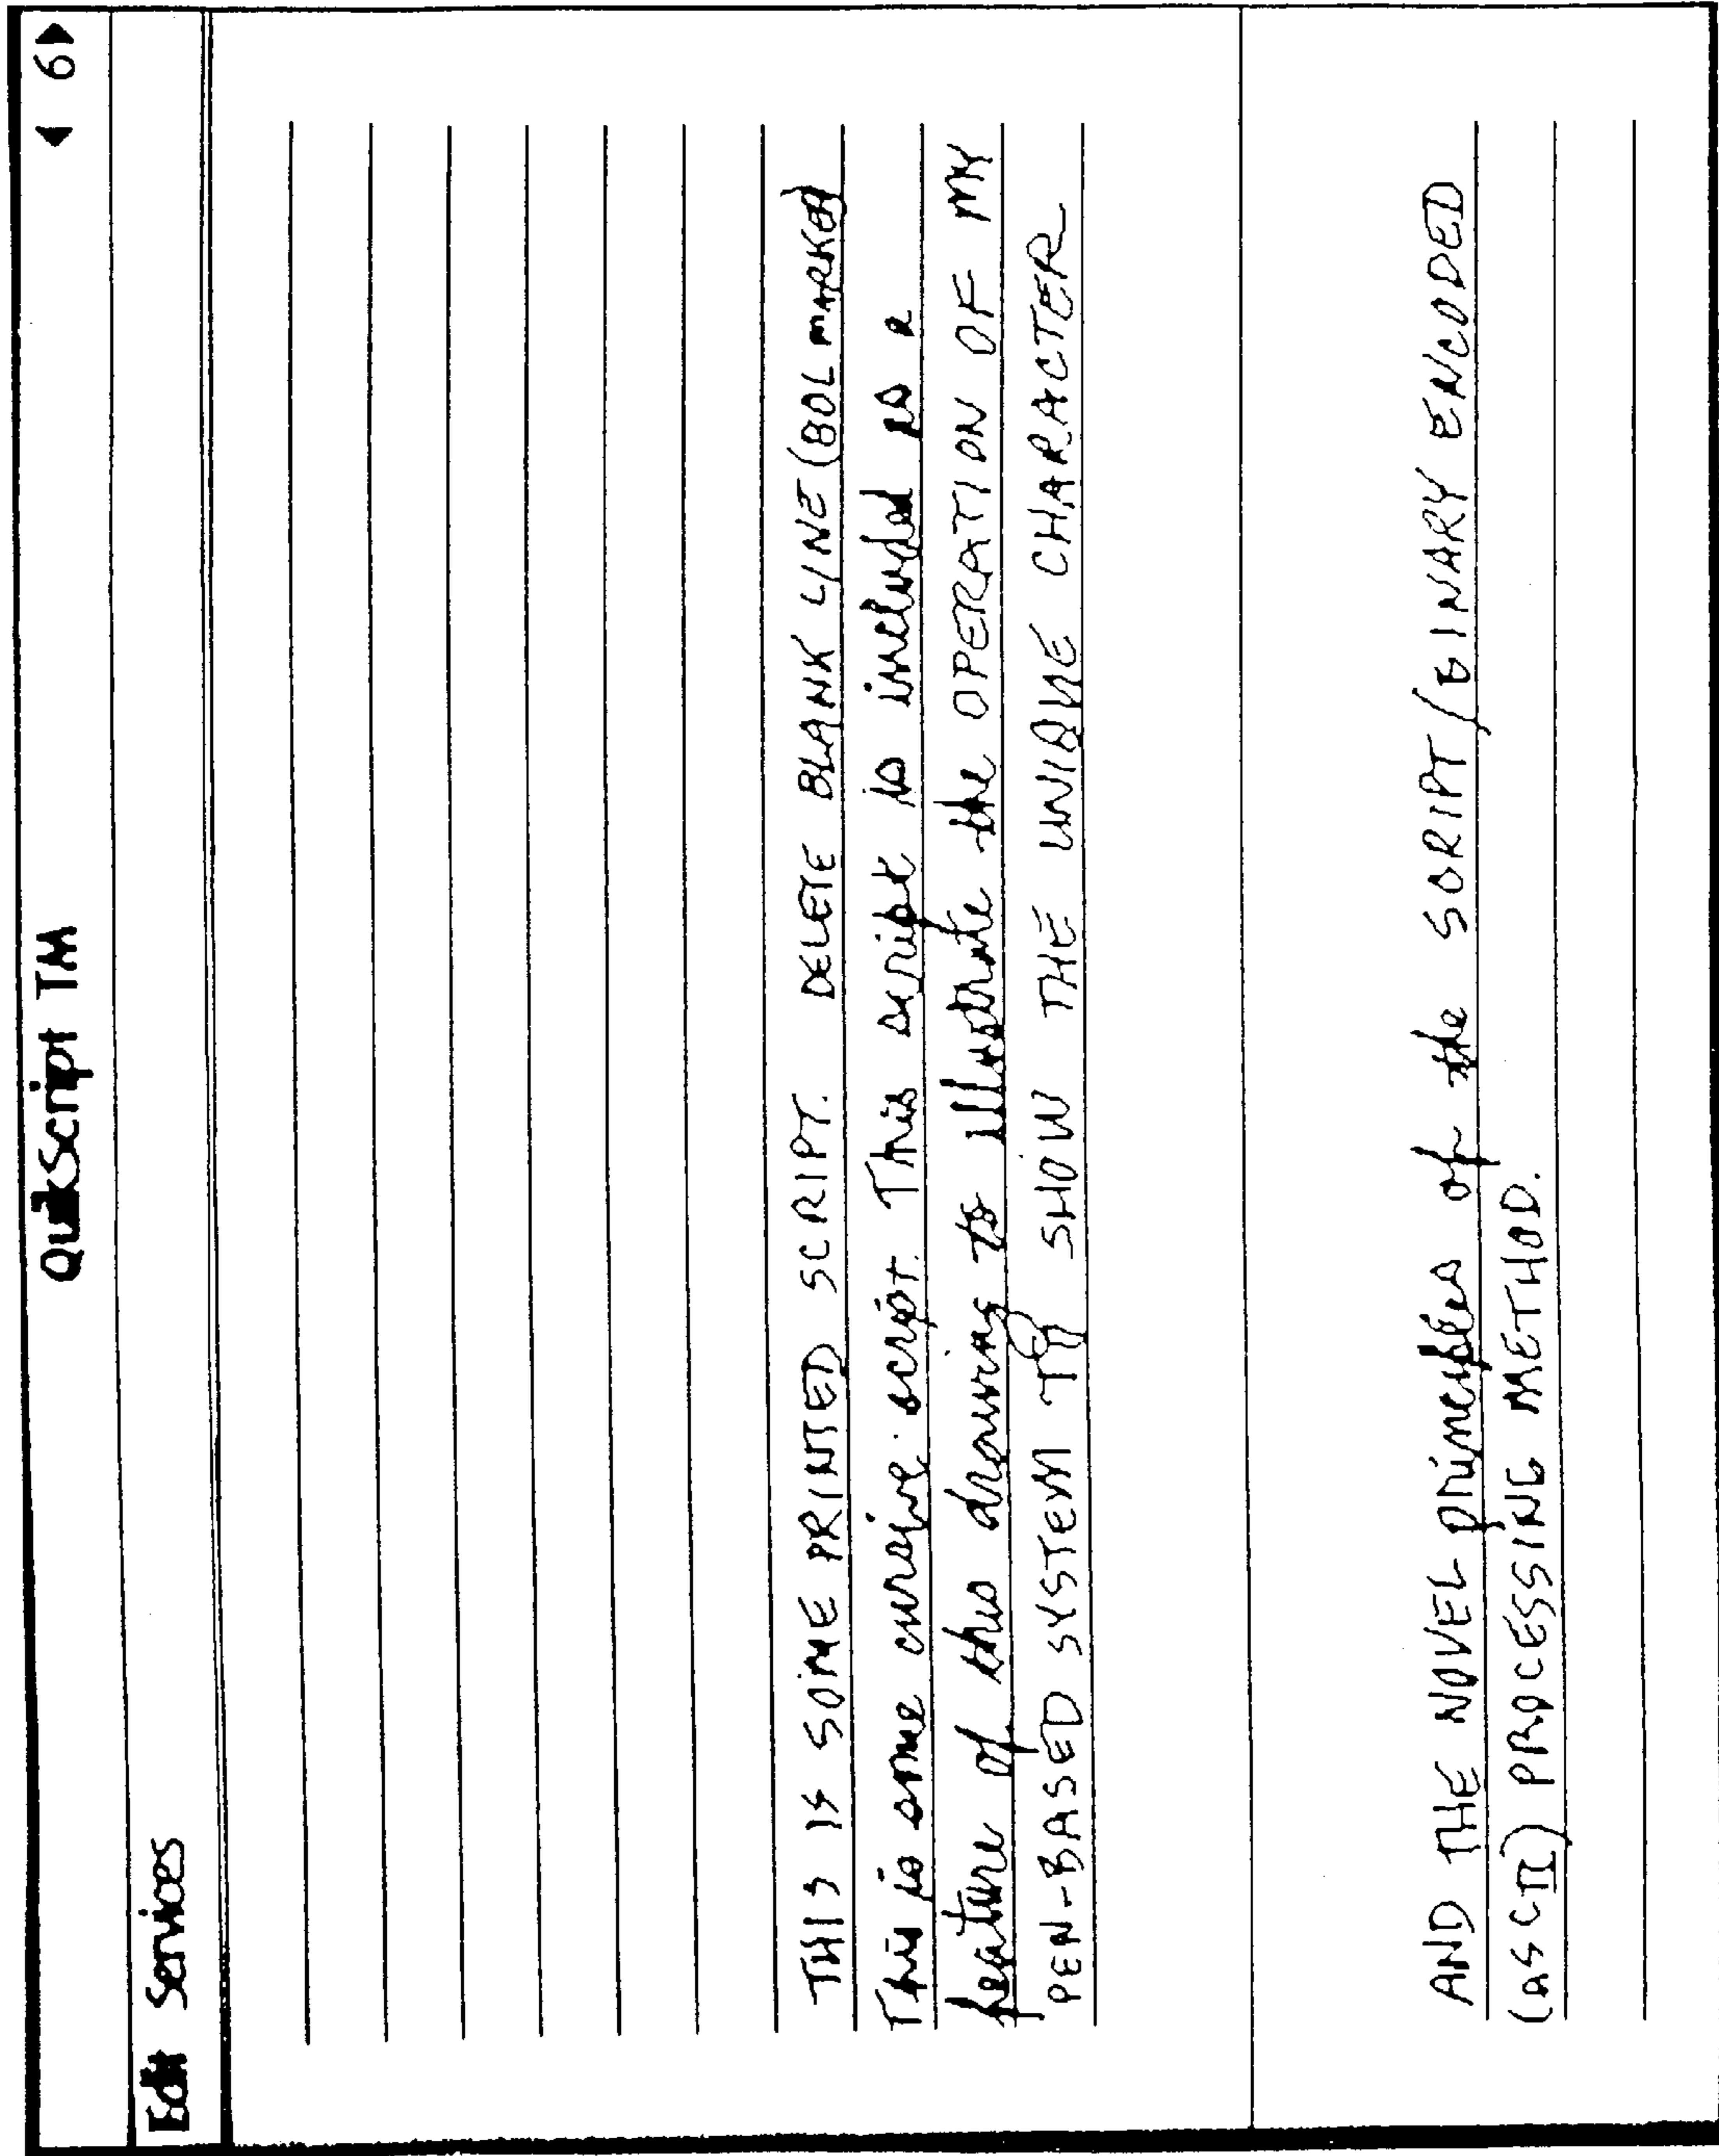 QuikScript TM ◀ 6▶
Edit Services
THIS IS SOME PRINTED SCRIPT. DELETE BLANK LINE (BOL MARKER)
This is some cursive script. This script is included as a
feature of this drawing to illustrate the OPERATION OF MY
PEN-BASED SYSTEM TO SHOW THE UNIQUE CHARACTER
AND THE NOVEL principles of the SCRIPT/BINARY ENCODED
(ASCII) PROCESSING METHOD.